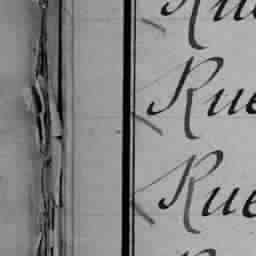 Rue
Rue
Rue